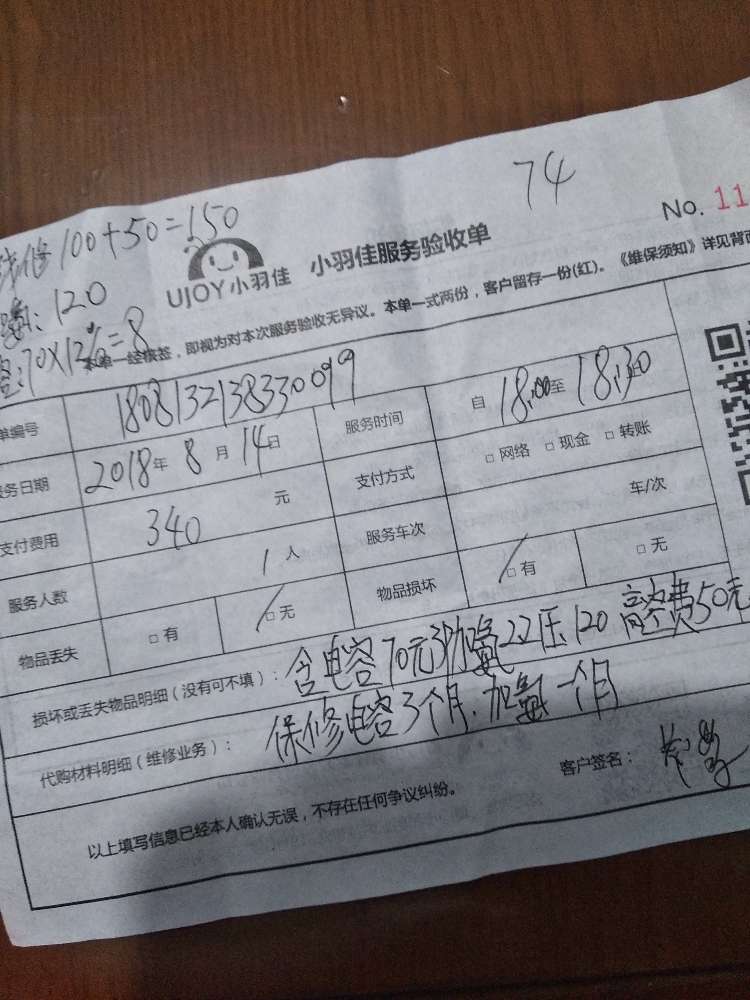 74
No. 11
线修 100+50=150
氟: 120
70×12%=8
UJOY小羽佳 小羽佳服务验收单
本单一经核签，即视为对本次服务验收无异议。本单一式两份，客户留存一份(红)。《维保须知》详见背面
单编号 180813213833 0099
服务时间 自 18:00 至 18:30
服务日期 2018年 8月 14日
支付方式 □ 网络 □ 现金 □ 转账
支付费用 340 元
服务车次 车/次
服务人数 1 人
物品损坏 □ 有 □ 无
物品丢失 □ 有 □ 无
损坏或丢失物品明细（没有可不填）： 含电容70元 加氟22压120 高空费50元
代购材料明细（维修业务）： 保修电容3个月.加氟一个月
客户签名：
以上填写信息已经本人确认无误，不存在任何争议纠纷。